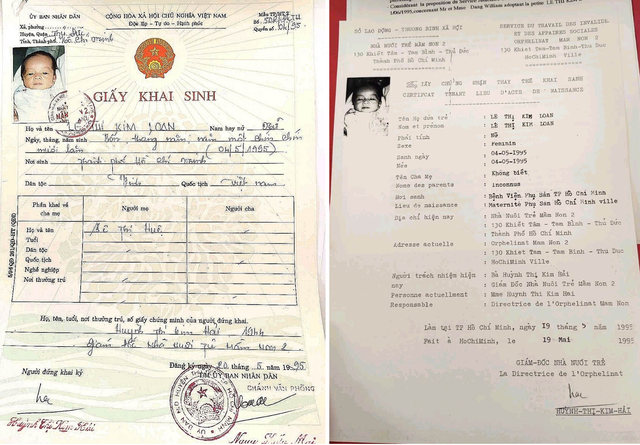 ỦY BAN NHÂN DÂN
Xã, phường
Huyện, Quận Thủ Đức
Tỉnh, Thành phố Hồ Chí Minh
CỘNG HÒA XÃ HỘI CHỦ NGHĨA VIỆT NAM
Độc lập - Tự do - Hạnh phúc
Số
Quyển số 01/95
GIẤY KHAI SINH
Họ và tên LÊ THỊ KIM LOAN Nam hay nữ Nữ
Ngày, tháng, năm sinh Bốn tháng năm, năm một chín chín
mươi lăm (04/5/1995)
Nơi sinh Thành phố Hồ Chí Minh
Dân tộc Kinh Quốc tịch Việt Nam
Phần khai về cha mẹ
Người mẹ
Người cha
Họ và tên
Lê Thị Huệ
Tuổi
Dân tộc
Quốc tịch
Nghề nghiệp
Nơi thường trú
Họ, tên, tuổi, nơi thường trú, số giấy chứng minh của người đứng khai.
Huỳnh Thị Kim Hải 1944
Giám đốc Nhà nuôi trẻ Mầm Non 2
Người đứng khai ký
Đăng ký ngày 20 tháng 5 năm 1995
TM ỦY BAN NHÂN DÂN
CHÁNH VĂN PHÒNG
Huỳnh Thị Kim Hải
SỞ LAO ĐỘNG - THƯƠNG BINH XÃ HỘI
NHÀ NUÔI TRẺ MẦM NON 2
130 KHIẾT TÂM - TAM BÌNH - THỦ ĐỨC
THÀNH PHỐ HỒ CHÍ MINH
SERVICE DU TRAVAIL DES INVALIDE
ET DES AFFAIRES SOCIALES
ORPHELINAT MAM NON 2
130 Khiet Tam-Tam Binh-Thu Duc
HoChiMinh Ville
GIẤY CHỨNG NHẬN THAY THẾ KHAI SANH
CERTIFICAT TENANT LIEU D'ACTE DE NAISSANCE
Tên Họ đứa trẻ : LÊ THỊ KIM LOAN
Nom et prénom : LÊ THỊ KIM LOAN
Phái tính : Nữ
Sexe : Feminin
Sanh ngày : 04-05-1995
Née : 04-05-1995
Tên Cha Mẹ : Không biết
Noms des parents : inconnus
Nơi sanh : Bệnh Viện Phụ Sản TP Hồ Chí Minh
Lieu de naissance : Maternité Phụ Sản HoChiMinh ville
Địa chỉ hiện nay : Nhà Nuôi Trẻ Mầm Non 2
130 Khiết Tâm - Tam Bình - Thủ Đức
Thành Phố Hồ Chí Minh
Adresse actuelle : Orphelinat Mam Non 2
130 Khiet Tam - Tam Binh - Thu Duc
HoChiMinh Ville
Người trách nhiệm hiện : Bà Huỳnh Thị Kim Hải
nay : Giám Đốc Nhà Nuôi Trẻ Mầm Non 2
Personne actuellement : Mme Huynh Thi Kim Hai
Responsable : Directrice de l'Orphelinat Mam Non
Làm tại TP Hồ Chí Minh, ngày 19 tháng 5 năm 1995
Fait à HoChiMinh, le 19 Mai 1995
GIÁM-ĐỐC NHÀ NUÔI TRẺ
La Directrice de l'Orphelinat
HUỲNH-THỊ-KIM-HẢI